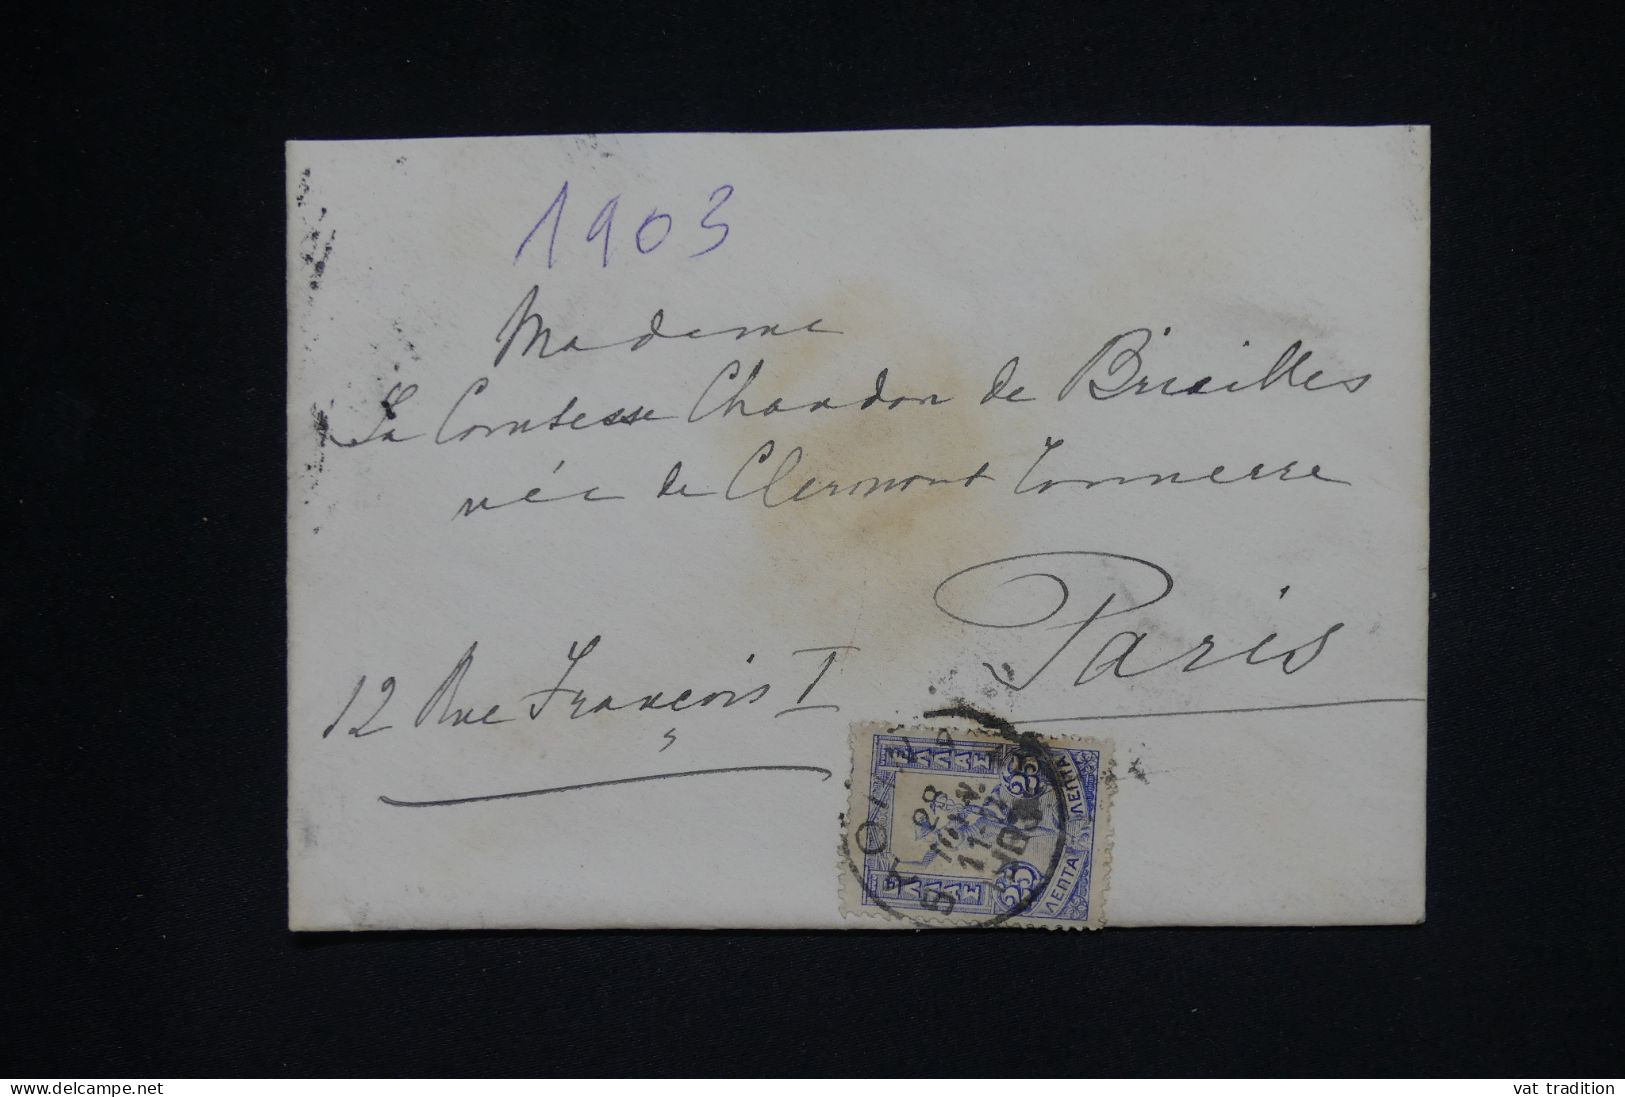 1903
Madame
La Comtesse Chandon de Briailles
née de Clermont Tonnerre
Paris
12 Rue François I
ΕΛΛΑΣ
25
ΛΕΠΤΑ
ΕΛΛΑΣ
25
ΛΕΠΤΑ
28
ΙΟΥΝ.
11-12
www.delcampe.net
vat tradition